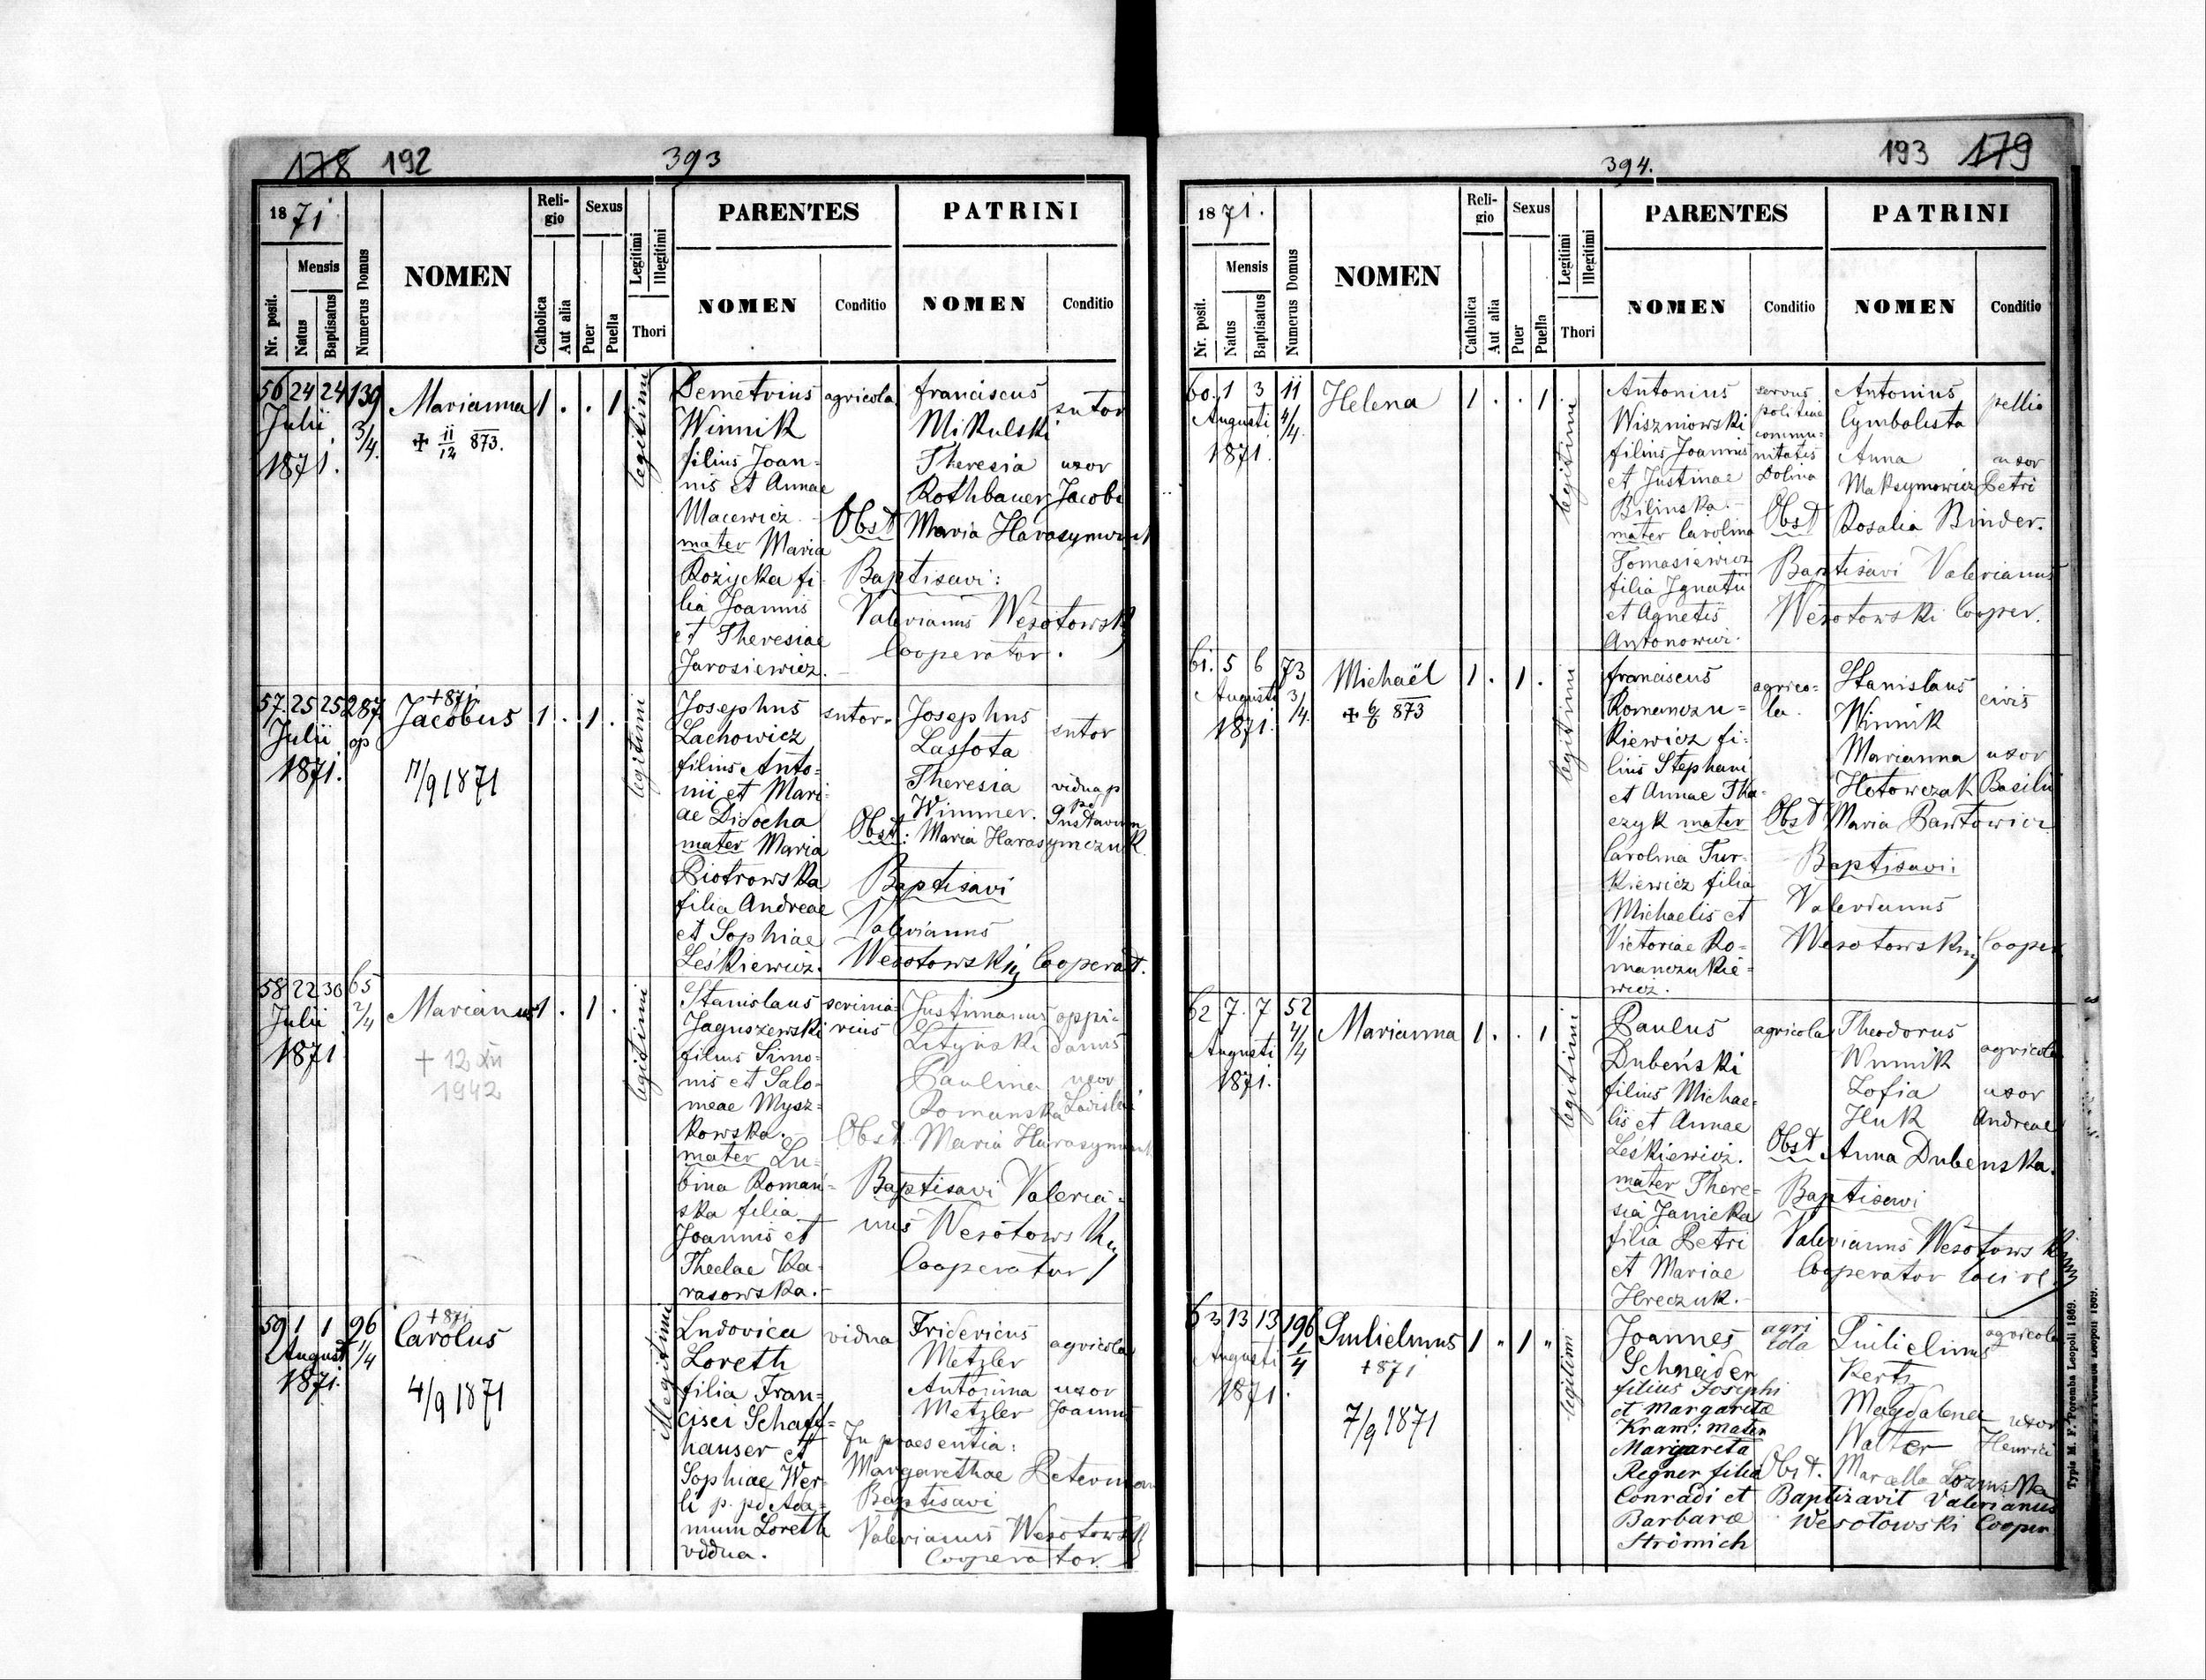 178 192
393
1871.
Nr. posit.
Mensis
Natus
Baptisatus
Numerus Domus
NOMEN
Religio
Catholica
Aut alia
Sexus
Puer
Puella
Legitimi
Illegitimi
Thori
PARENTES
NOMEN
Conditio
PATRINI
NOMEN
Conditio
56 24 24 139
Julii 3/4.
1871.
Marianna
+ 11/12 873.
1 . . 1
legitimi
Demetrius
Winnik
filius Joan=
nis et Annae
Macewicz
mater Maria
Rozycka fi=
lia Joannis
et Theresiae
Jarosiewicz.
agricola
franciscus
Mikulski
sutor
Theresia
Rothbauer
uxor
Jacobi
Obst Maria Harasymczuk
Baptisavi:
Valerianus Wesołowski
Cooperator.
57. 25 25 287
Julii op
1871.
+871
Jacobus
11/9 1871
1 . 1 .
legitimi
Josephus
Lachowicz
filius Anto=
nii et Mari=
ae Didocha
mater Maria
Piotrowska
filia Andreae
et Sophiae
Leśkiewicz.
sutor.
Josephus
Lassota
sutor
Theresia
Wimmer.
vidua p
pd
Gustavum
Obst: Maria Harasymczuk
Baptisavi
Valerianus
Wesołowski Cooperat.
58 22 30 65
Julii 2/4
1871
Marianus
+ 12 XII
1942
1 . 1 .
legitimi
Stanislaus
Jaguszewski
filius Simo=
nis et Salo=
meae Mysz=
kowska.
mater Lu=
bina Roman=
ska filia
Joannis et
Theclae Ka=
rasowska.
scrinia=
rius
Justinianus
Lityński
oppi=
danus
Paulina
Romanska
uxor
Ladislai
Obst. Maria Harasymczuk
Baptisavi Valeria=
nus Wesołowski
Cooperator
59 1 1 96
August 1/4
1871.
+871
Carolus
4/9 1871
illegitimi
Ludovica
Loreth
filia Fran=
cisci Schaff=
hauser et
Sophiae Wer=
li p. pd Ada=
mum Loreth
vidua.
vidua
Fridericus
Metzler
agricola
Antonina
Metzler
uxor
Joannis
In praesentia:
Margarethae Peterman
Baptisavi
Valerianus Wesołowski
Cooperator
193 179
394.
1871.
Nr. posit.
Mensis
Natus
Baptisatus
Numerus Domus
NOMEN
Religio
Catholica
Aut alia
Sexus
Puer
Puella
Legitimi
Illegitimi
Thori
PARENTES
NOMEN
Conditio
PATRINI
NOMEN
Conditio
60. 1 3 11
Augusti 4/4.
1871.
Helena
1 . . 1
legitimi
Antonius
Wiszniowski
filius Joannis
et Justinae
Bilinska.
mater Carolina
Tomasiewicz
filia Ignatii
et Agnetis
Antonowicz.
servus
politiae
commu=
nitatis
Dolina
Antonius
Cymbolista
pellio
Anna
Maksymowicz
uxor
Petri
Obst Rosalia Binder.
Baptisavi Valerianus
Wesołowski Cooper.
61. 5 6 73
Augusti 3/4
1871.
Michaël
+ 6/6 873
1 . 1 .
legitimi
franciscus
Romanczu=
kiewicz fi=
lius Stephani
et Annae Tka=
czyk mater
Carolina Tur=
kiewicz filia
Michaelis et
Victoriae Ro=
manczukie=
wicz.
agrico=
la.
Stanislaus
Winnik
civis
Marianna
Hołowczak
uxor
Basilii
Obst Maria Pawłowicz
Baptisavi:
Valerianus
Wesołowski Cooper
62 7. 7 52
Augusti 4/4
1871.
Marianna
1 . . 1
legitimi
Paulus
Dubeński
filius Michae=
lis et Annae
Leśkiewicz.
mater There=
sia Janicka
filia Petri
et Mariae
Hreczuk.
agricola
Theodorus
Winnik
agricola
Zofia
Huk
uxor
Andreae
Obst Anna Dubenska.
Baptisavi
Valerianus Wesołowski
Cooperator
63 13 13 196
Augusti 1/4
1871.
Guilielmus
+871
7/9 1871
1 " 1 "
legitimi
Joannes
Schneider
filius Josephi
et Margaritæ
Kram: mater
Margarita
Regner filia
Conradi et
Barbaræ
Strömich
agri
cola
Guilielmus
Kertz
agricola
Magdalena
Walter
uxor
Henrici
Obst. Marcella Łozinska
Baptizavit Valerianus
Wesołowski Cooper
Typis M. F. Poremba Leopoli 1869.